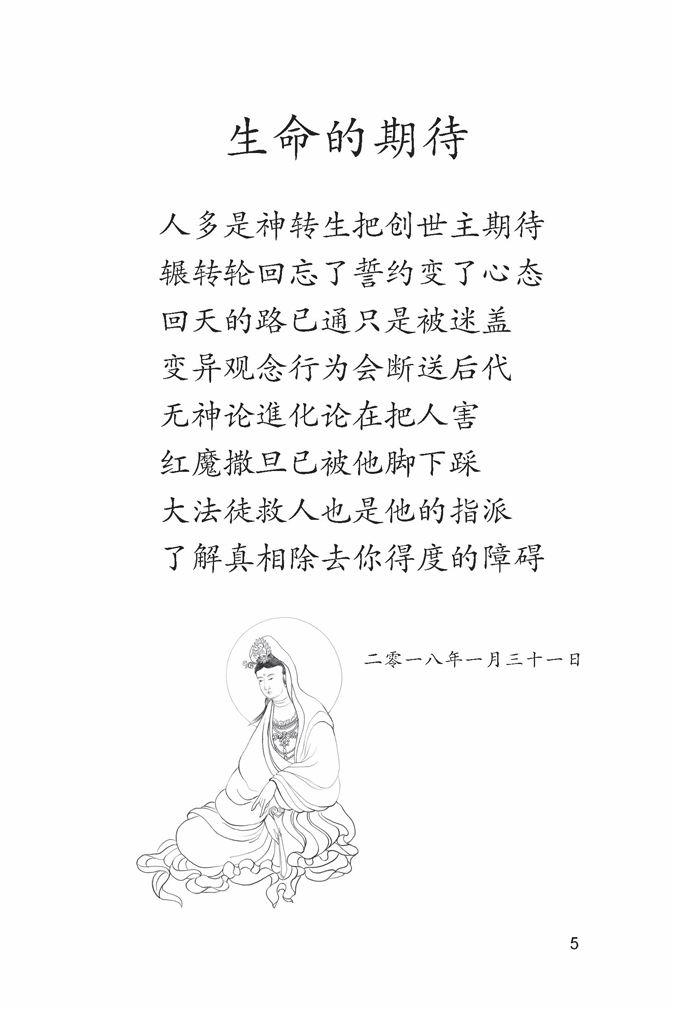 生命的期待
人多是神转生把创世主期待
辗转轮回忘了誓约变了心态
回天的路已通只是被迷盖
变异观念行为会断送后代
无神论進化论在把人害
红魔撒旦已被他脚下踩
大法徒救人也是他的指派
了解真相除去你得度的障碍
二零一八年一月三十一日
5